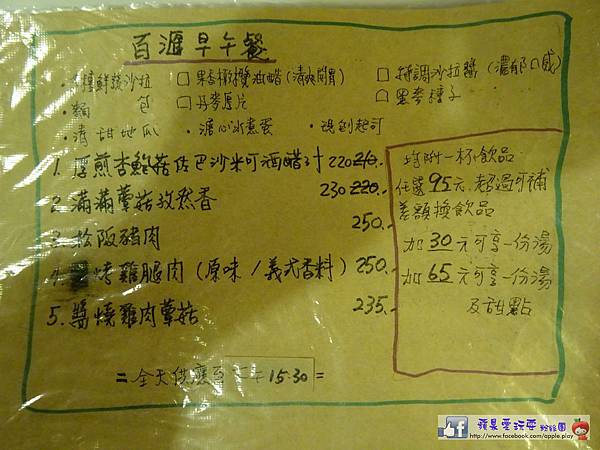 百滙早午餐
·有機鮮蔬沙拉 □果香橄欖油醋(清爽開胃) □特調沙拉醬(濃郁口感)
·麵包 □丹麥厚片 □墨麥饅子
·清甜地瓜 ·溏心水煮蛋 ·現刨起司
1. 厚煎杏鮑菇佐巴沙米可酒醋汁 220 210.-
2. 滿滿蕈菇孜然香 230 220.-
3. 松阪豬肉 250.-
4. 烤雞腿肉(原味/義式香料) 250.-
5. 醬燒雞肉蕈菇 235.-
=全天供應至下午15:30=
均附一杯飲品
任選95元,超過可補
差額換飲品
加30元可享一份湯
加65元可享一份湯
及甜點
蘋果愛玩耍 粉絲團
http://www.facebook.com/apple.play